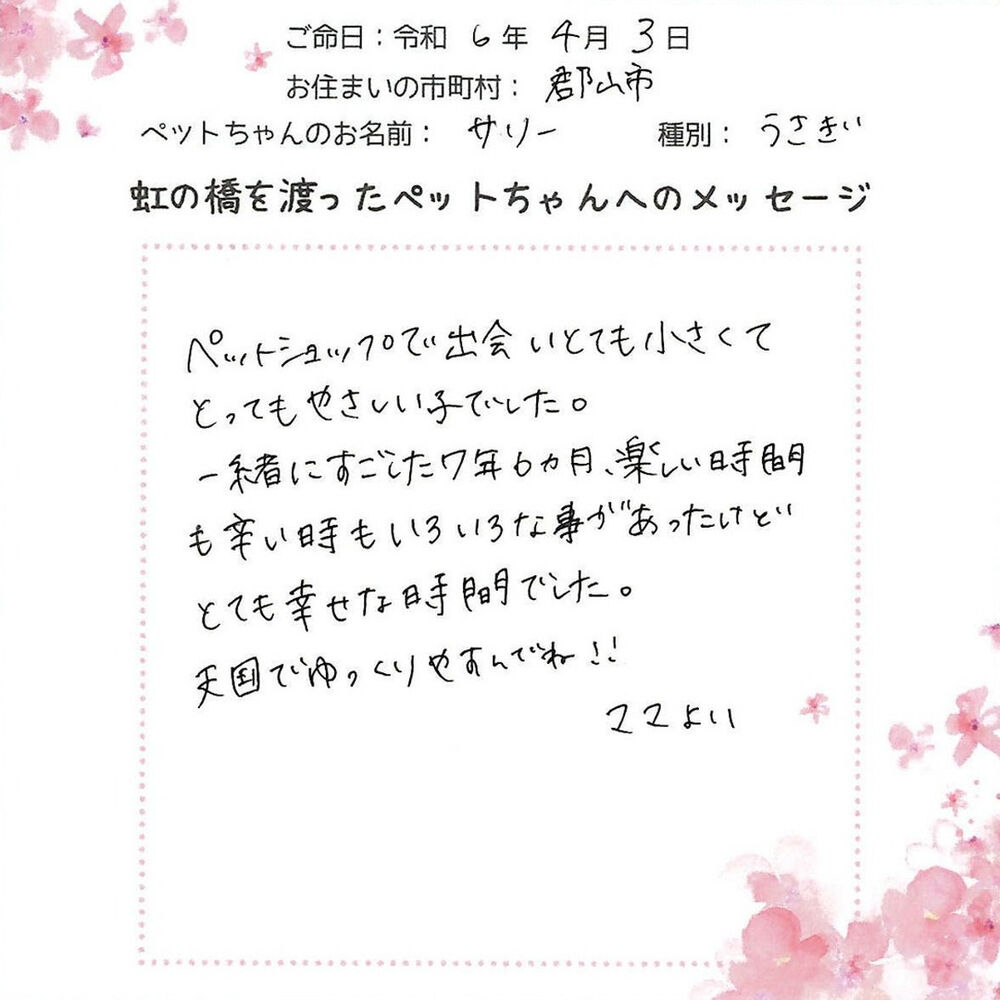 ご命日：令和 6 年 4月 3 日
お住まいの市町村： 郡山市
ペットちゃんのお名前： サリー 種別： うさぎ
虹の橋を渡ったペットちゃんへのメッセージ
ペットショップで出会いとても小さくて
とってもやさしい子でした。
一緒にすごした7年6ヵ月、楽しい時間
も辛い時もいろいろな事があったけど
とても幸せな時間でした。
天国でゆっくりやすんでね!!
ママより